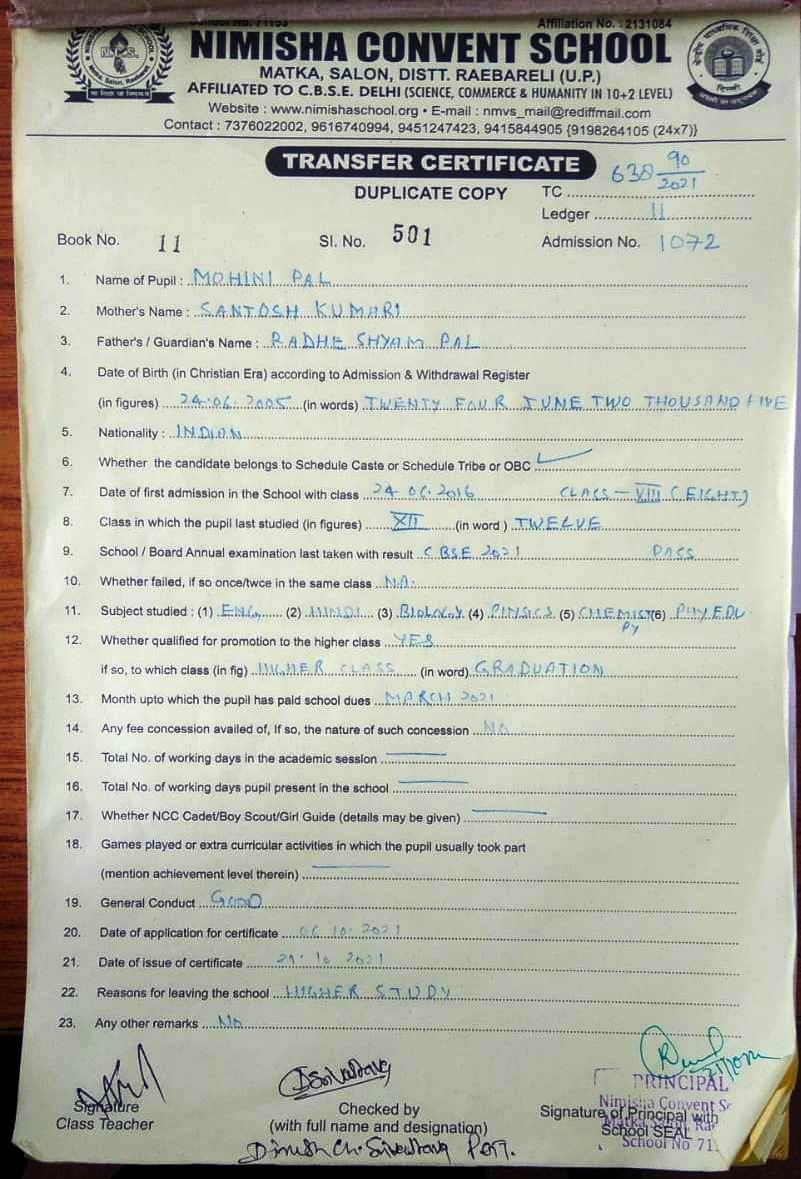 School No. 71153 Affiliation No. : 2131084
NIMISHA CONVENT SCHOOL
MATKA, SALON, DISTT. RAEBARELI (U.P.)
AFFILIATED TO C.B.S.E. DELHI (SCIENCE, COMMERCE & HUMANITY IN 10+2 LEVEL)
Website : www.nimishaschool.org • E-mail : nmvs_mail@rediffmail.com
Contact : 7376022002, 9616740994, 9451247423, 9415844905 {9198264105 (24x7)}
TRANSFER CERTIFICATE
DUPLICATE COPY TC 638 90/2021
Ledger 11
Book No. 11 Sl. No. 501 Admission No. 1072
1. Name of Pupil : MOHINI PAL
2. Mother's Name : SANTOSH KUMARI
3. Father's / Guardian's Name : RADHE SHYAM PAL
4. Date of Birth (in Christian Era) according to Admission & Withdrawal Register
(in figures) 24.06.2005 (in words) TWENTY FOUR JUNE TWO THOUSAND FIVE
5. Nationality : INDIAN
6. Whether the candidate belongs to Schedule Caste or Schedule Tribe or OBC
7. Date of first admission in the School with class 24 06.2016 CLASS - VIII (EIGHT)
8. Class in which the pupil last studied (in figures) XII (in word ) TWELVE
9. School / Board Annual examination last taken with result CBSE 2021 PASS
10. Whether failed, if so once/twce in the same class NA.
11. Subject studied : (1) ENG. (2) HINDI (3) BIOLOGY (4) PHSICS (5) CHEMIST (6) PHY EDU
RY
12. Whether qualified for promotion to the higher class YES
if so, to which class (in fig) HIGHER CLASS (in word) GRADUATION
13. Month upto which the pupil has paid school dues MARCH 2021
14. Any fee concession availed of, If so, the nature of such concession NO
15. Total No. of working days in the academic session
16. Total No. of working days pupil present in the school
17. Whether NCC Cadet/Boy Scout/Girl Guide (details may be given)
18. Games played or extra curricular activities in which the pupil usually took part
(mention achievement level therein)
19. General Conduct GOOD
20. Date of application for certificate 06.10.2021
21. Date of issue of certificate 21.10 2021
22. Reasons for leaving the school HIGHER STUDY
23. Any other remarks No
PRINCIPAL
Nimisha Convent
School No 71
Signature
Class Teacher
Checked by
(with full name and designation)
Signature of Principal with
School SEAL